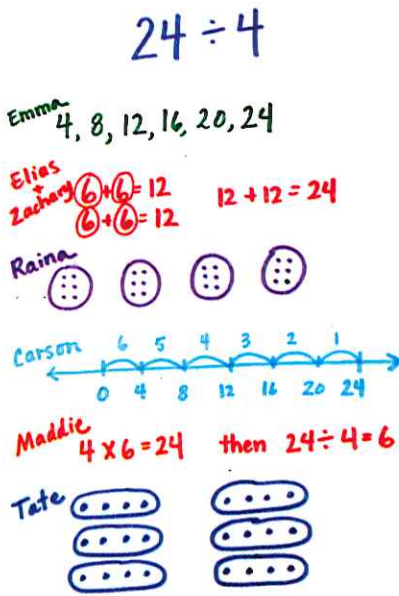 24 ÷ 4
Emma 4, 8, 12, 16, 20, 24
Elias + Zachary 6 + 6 = 12 12 + 12 = 24
6 + 6 = 12
Raina
Carson 6 5 4 3 2 1
0 4 8 12 16 20 24
Maddie 4 x 6 = 24 then 24 ÷ 4 = 6
Tate